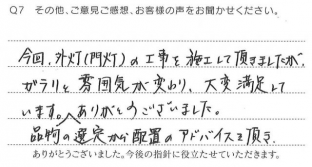 Q7 その他、ご意見ご感想、お客様の声をお聞かせください。
今回、外灯(門灯)の工事を施工して頂きましたが、
ガラリと雰囲気が変わり、大変満足して
います。ありがとうございました。
品物の選定から配置のアドバイスを頂き
ありがとうございました。今後の指針に役立たせていただきます。